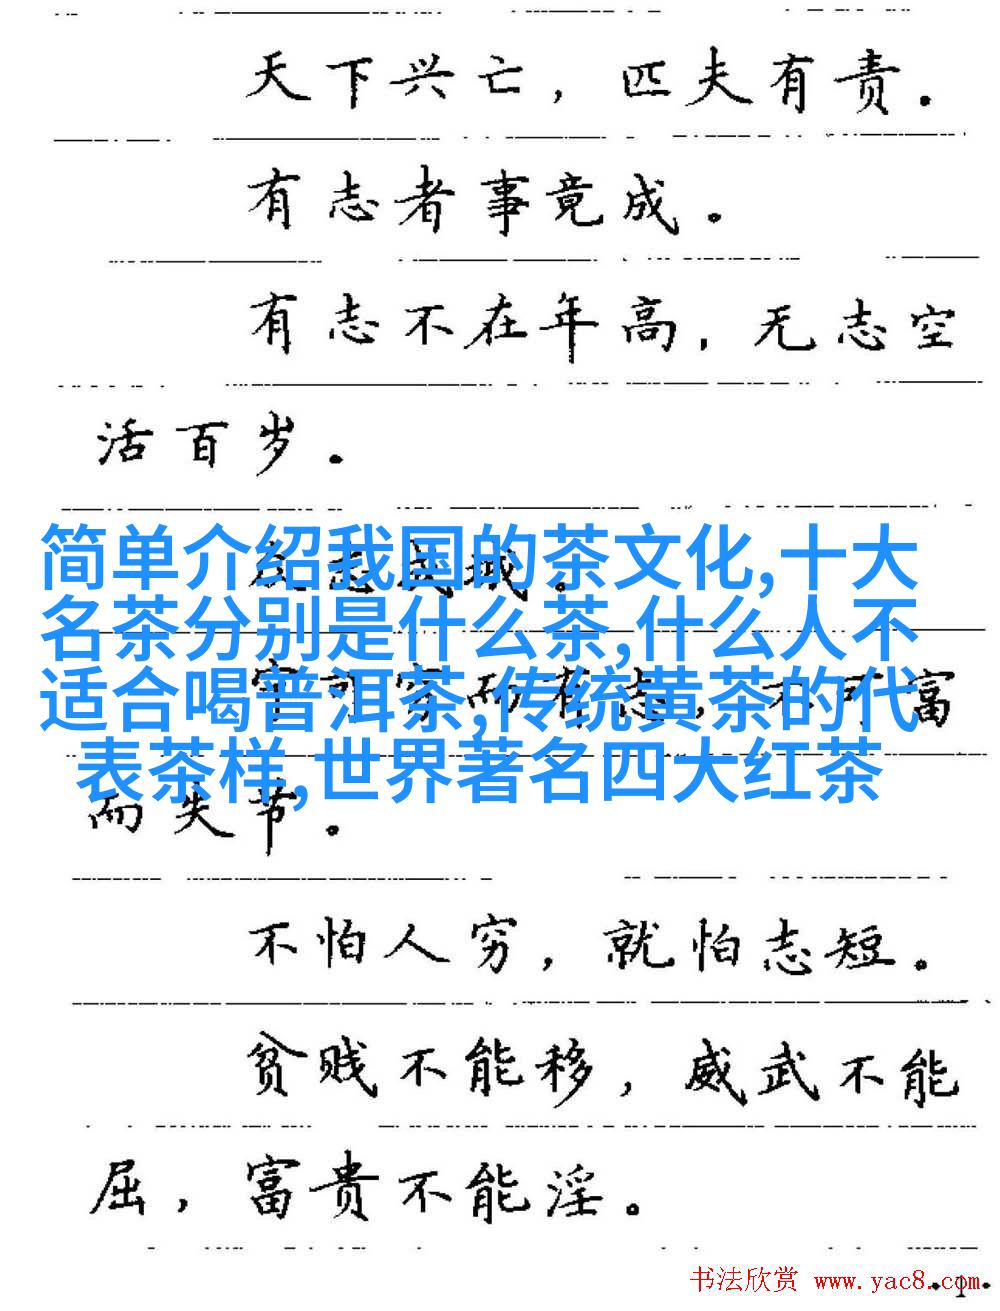 天下兴亡，匹夫有责．
有志者事竟成。
有志不在年高，无志空
活百岁．
简单介绍我国的茶文化,十大
名茶分别是什么茶,什么人不
适合喝普洱茶,传统黄茶的代
表茶样,世界著名四大红茶
众志成城．
宁可穷而有志，不可富
而失节。
不怕人穷，就怕志短。
贫贱不能移，威武不能
屈，富贵不能淫。
书法欣赏 www.yac8.com
·1·